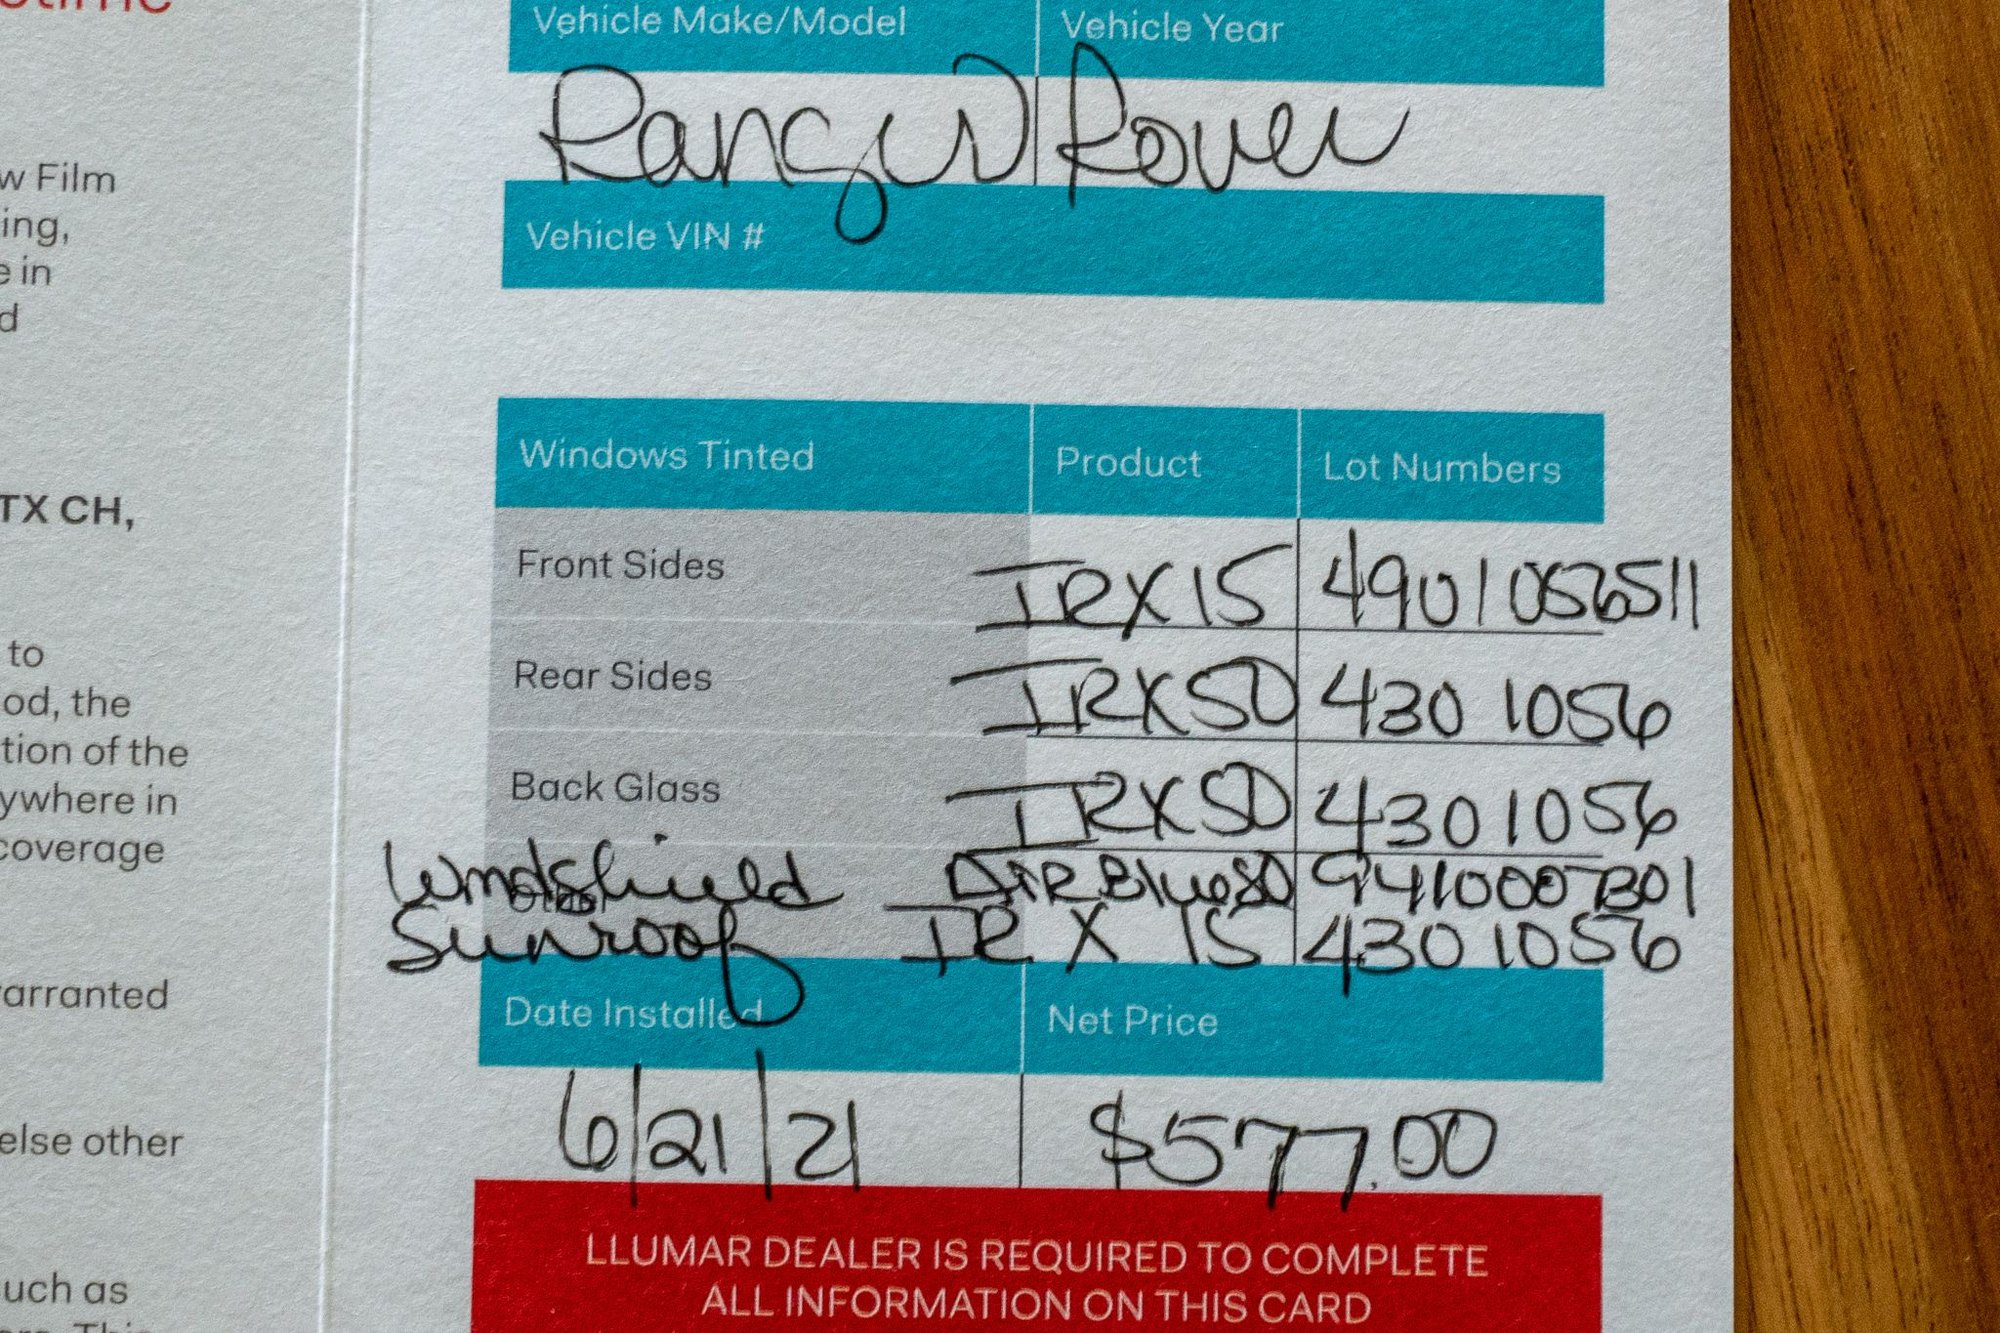 etime
w Film
ing,
e in
d
TX CH,
to
od, the
tion of the
ywhere in
coverage
arranted
else other
uch as
Vehicle Make/Model Vehicle Year
Range Rover
Vehicle VIN #
Windows Tinted Product Lot Numbers
Front Sides IRX15
Rear Sides IRX50 4301056
Back Glass IRX50 4301056
Windshield AIR Blue80
Sunroof IRX 15 4301056
Date Installed Net Price
6/21/21 $577.00
LLUMAR DEALER IS REQUIRED TO COMPLETE
ALL INFORMATION ON THIS CARD